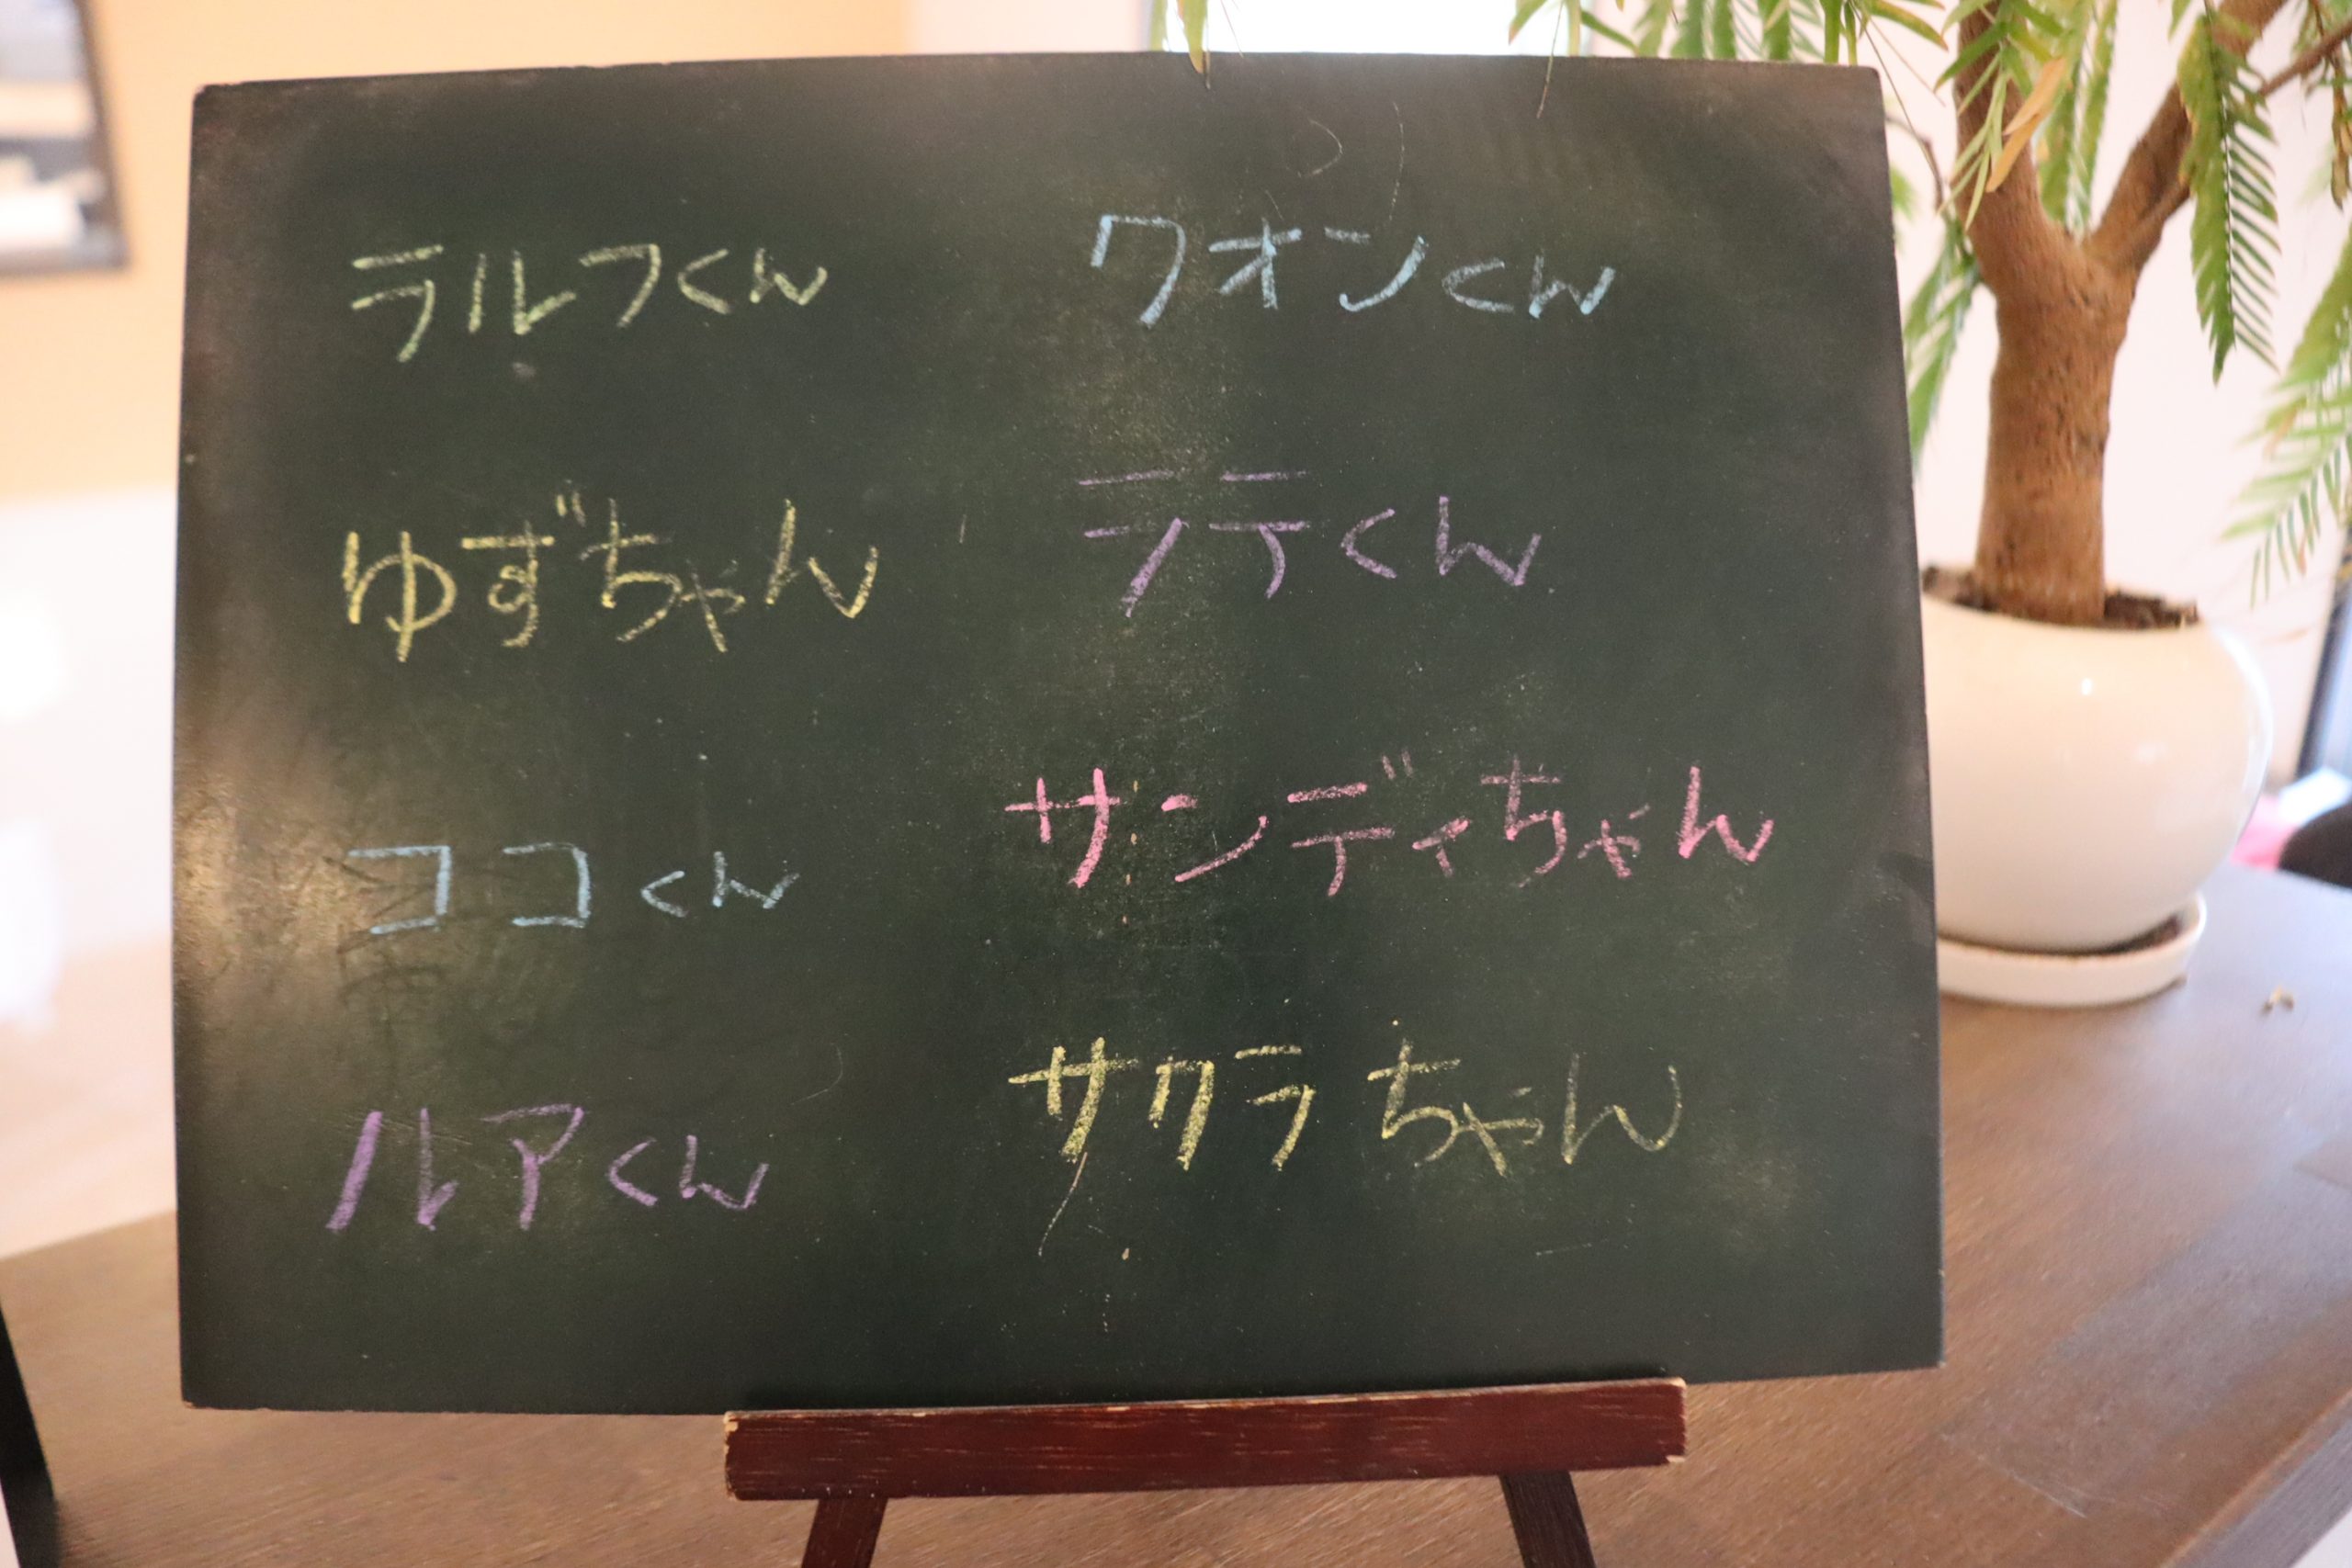 ラルフくん
ゆずちゃん
ココくん
ルアくん
クオンくん
ラテくん
サンディちゃん
サクラちゃん